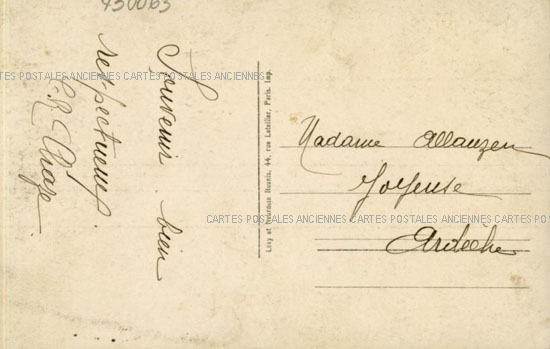 450063
Souvenir bien
respectueux.
CARTES POSTALES ANCIENNES CARTES POSTALES ANCIENNES
Lévy et Neurdein Réunis, 44, rue Letellier, Paris. Imp.
Madame Allauzen
Joyeuse
CARTES POSTALES ANCIENNES CARTES POSTALES ANCIENNES CARTES POSTALES ANCIENNES
Ardèche